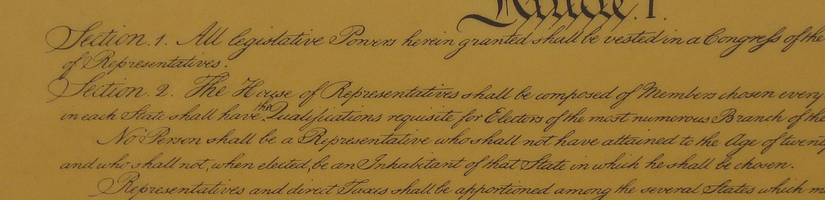 Article. I.
Section. 1. All legislative Powers herein granted shall be vested in a Congress of the
of Representatives.
Section. 2. The House of Representatives shall be composed of Members chosen every
in each State shall have the Qualifications requisite for Electors of the most numerous Branch of the
No Person shall be a Representative who shall not have attained to the Age of twenty
and who shall not, when elected, be an Inhabitant of that State in which he shall be chosen.
Representatives and direct Taxes shall be apportioned among the several States which m